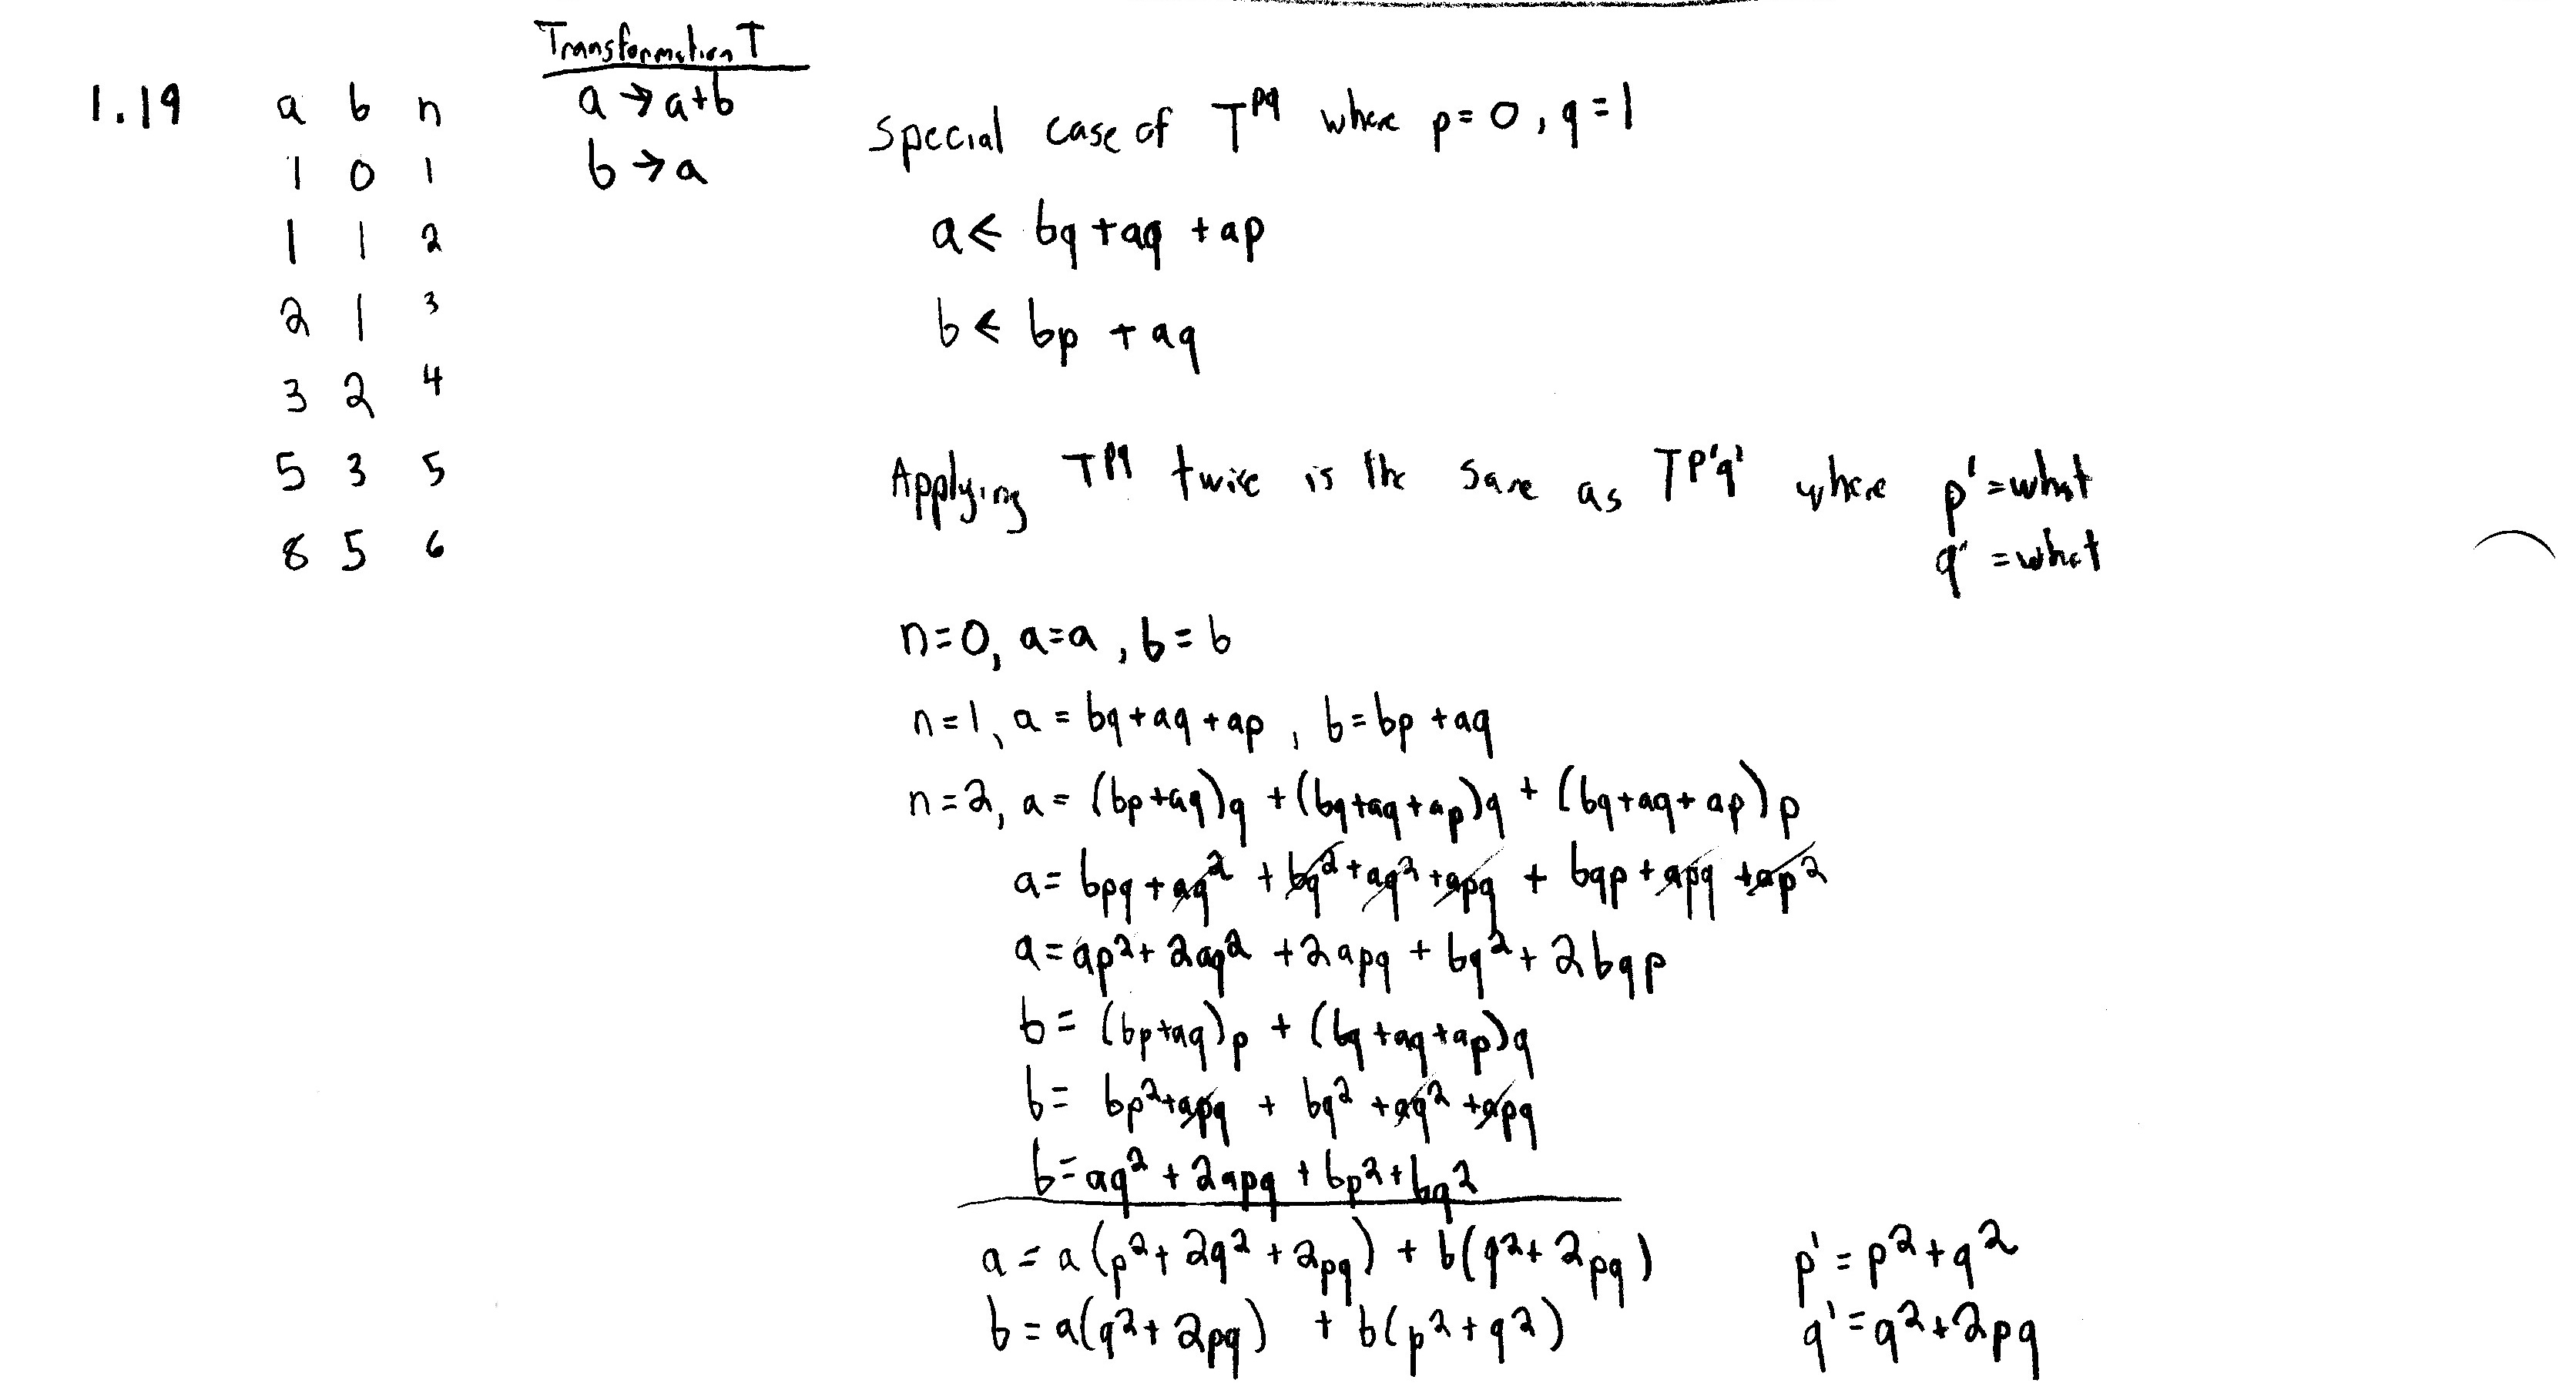 Transformation T
1.19 a b n a → a+b
1 0 1 b → a
1 1 2
2 1 3
3 2 4
5 3 5
8 5 6
Special case of T^pq where p=0, q=1
a ← bq + aq + ap
b ← bp + aq
Applying T^pq twice is the same as T^p'q' where p' = what
q' = what
n=0, a=a, b=b
n=1, a = bq + aq + ap, b = bp + aq
n=2, a = (bp+aq)q + (bq+aq+ap)q + (bq+aq+ap)p
a = bpq + aq² + bq² + aq² + apq + bqp + apq + ap²
a = ap² + 2aq² + 2apq + bq² + 2bqp
b = (bp+aq)p + (bq+aq+ap)q
b = bp² + apq + bq² + aq² + apq
b = aq² + 2apq + bp² + bq²
a = a(p² + 2q² + 2pq) + b(q² + 2pq) p' = p² + q²
b = a(q² + 2pq) + b(p² + q²) q' = q² + 2pq